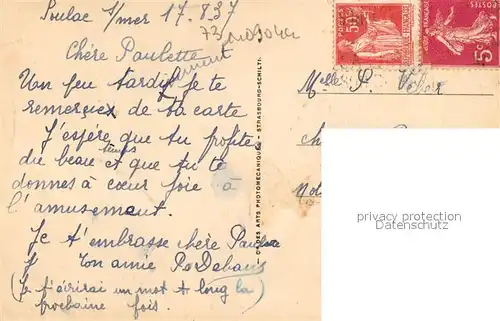 Soulac s/mer 17.8.37
73 M09044
Chère Paulette
Un peu tardivement je te
remercie de ta carte
J'espère que tu profites
du beau temps et que tu te
donnes à cœur joie à
l'amusement.
Je t'embrasse chère Paulette
Ton amie
(Je t'écrirai un mot + long la
prochaine fois.)
CIE DES ARTS PHOTOMECANIQUES - STRASBOURG-SCHILTIG
POSTES
50c
POSTES
5c
Melle P.
privacy protection
Datenschutz